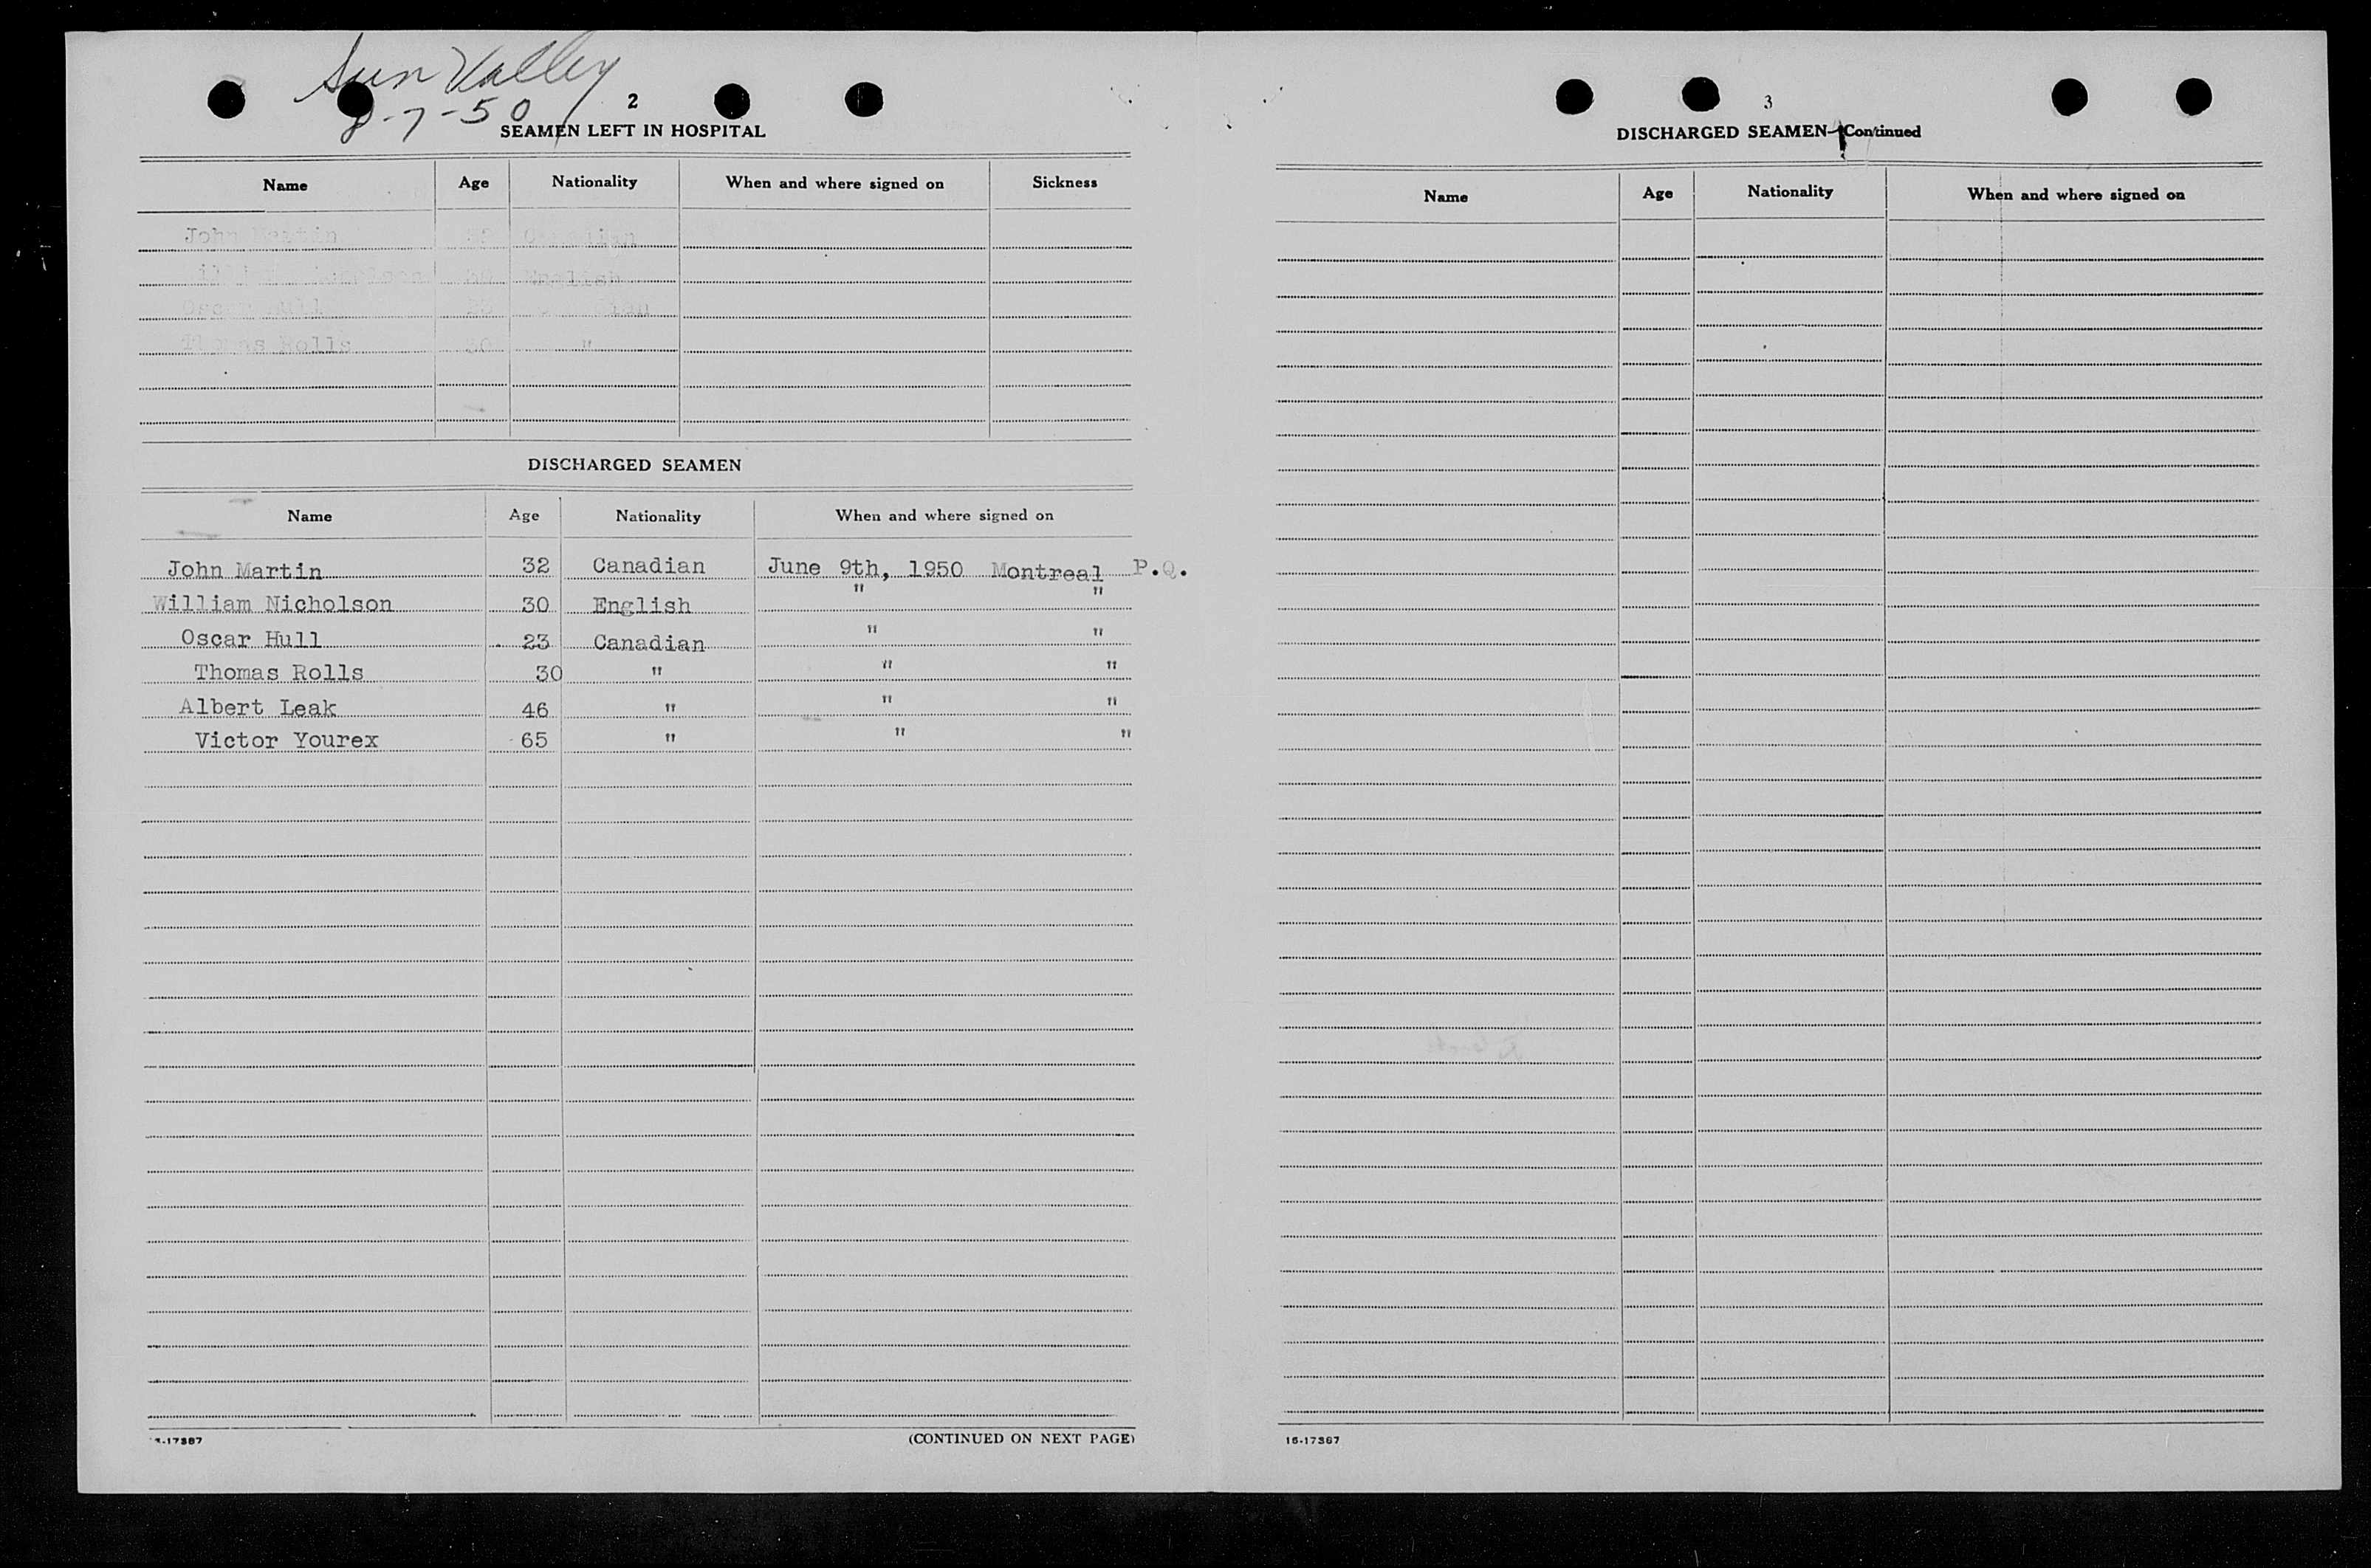 Sun Valley
8-7-50
2
SEAMEN LEFT IN HOSPITAL
Name Age Nationality When and where signed on Sickness
John Martin Canadian
30 English
Oscar Hull 23
Thomas Rolls 30 "
DISCHARGED SEAMEN
Name Age Nationality When and where signed on
John Martin 32 Canadian June 9th, 1950 Montreal P.Q.
William Nicholson 30 English " "
Oscar Hull 23 Canadian " "
Thomas Rolls 30 " " "
Albert Leak 46 " " "
Victor Yourex 65 " " "
(CONTINUED ON NEXT PAGE)
3
DISCHARGED SEAMEN—Continued
Name Age Nationality When and where signed on
16-17367